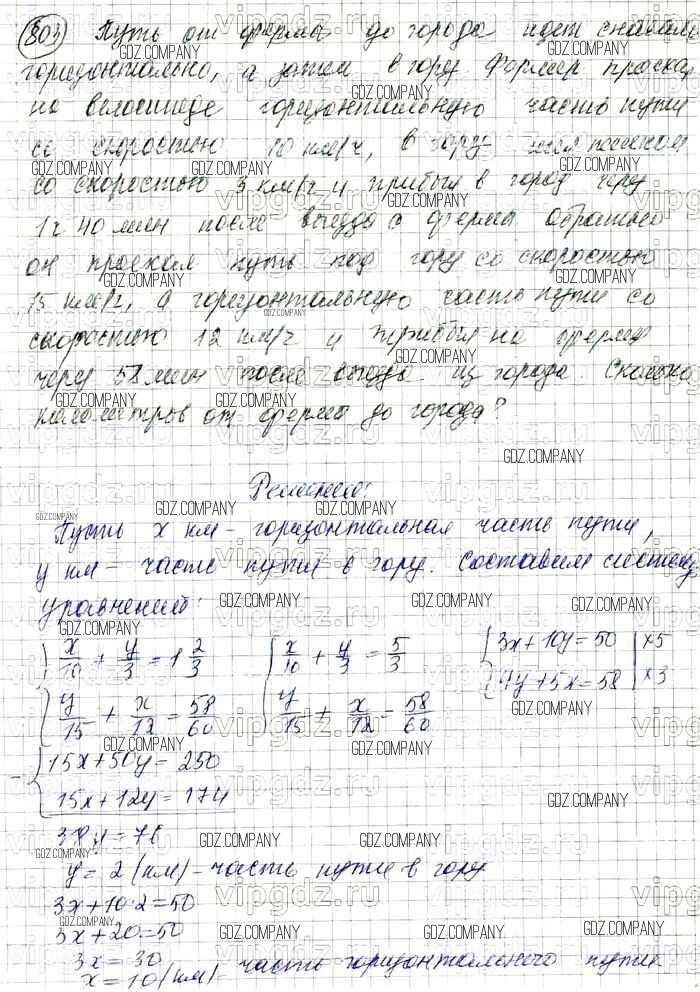 803) Путь от фермы до города идет сначала
горизонтально, а затем в гору. Фермер проехал
на велосипеде горизонтальную часть пути
со скоростью 10 км/ч, в гору - шел пешком
со скоростью 3 км/ч и прибыл в город через
1 ч 40 мин после выезда с фермы. Обратно
он проехал путь под гору со скоростью
15 км/ч, а горизонтальную часть пути со
скоростью 12 км/ч и прибыл на ферму
через 58 мин после выезда из города. Сколько
километров от фермы до города?
Решение:
Пусть x км - горизонтальная часть пути,
y км - часть пути в гору. Составим систему
уравнений:
x/10 + y/3 = 1 2/3 x/10 + y/3 = 5/3 3x + 10y = 50 | ×5
y/15 + x/12 = 58/60 y/15 + x/12 = 58/60 4y + 5x = 58 | ×3
15x + 50y = 250
15x + 12y = 174
38y = 76
y = 2 (км) - часть пути в гору
3x + 10·2 = 50
3x + 20 = 50
3x = 30
x = 10 (км) - часть горизонтального пути
GDZ.COMPANY
vipgdz.ru